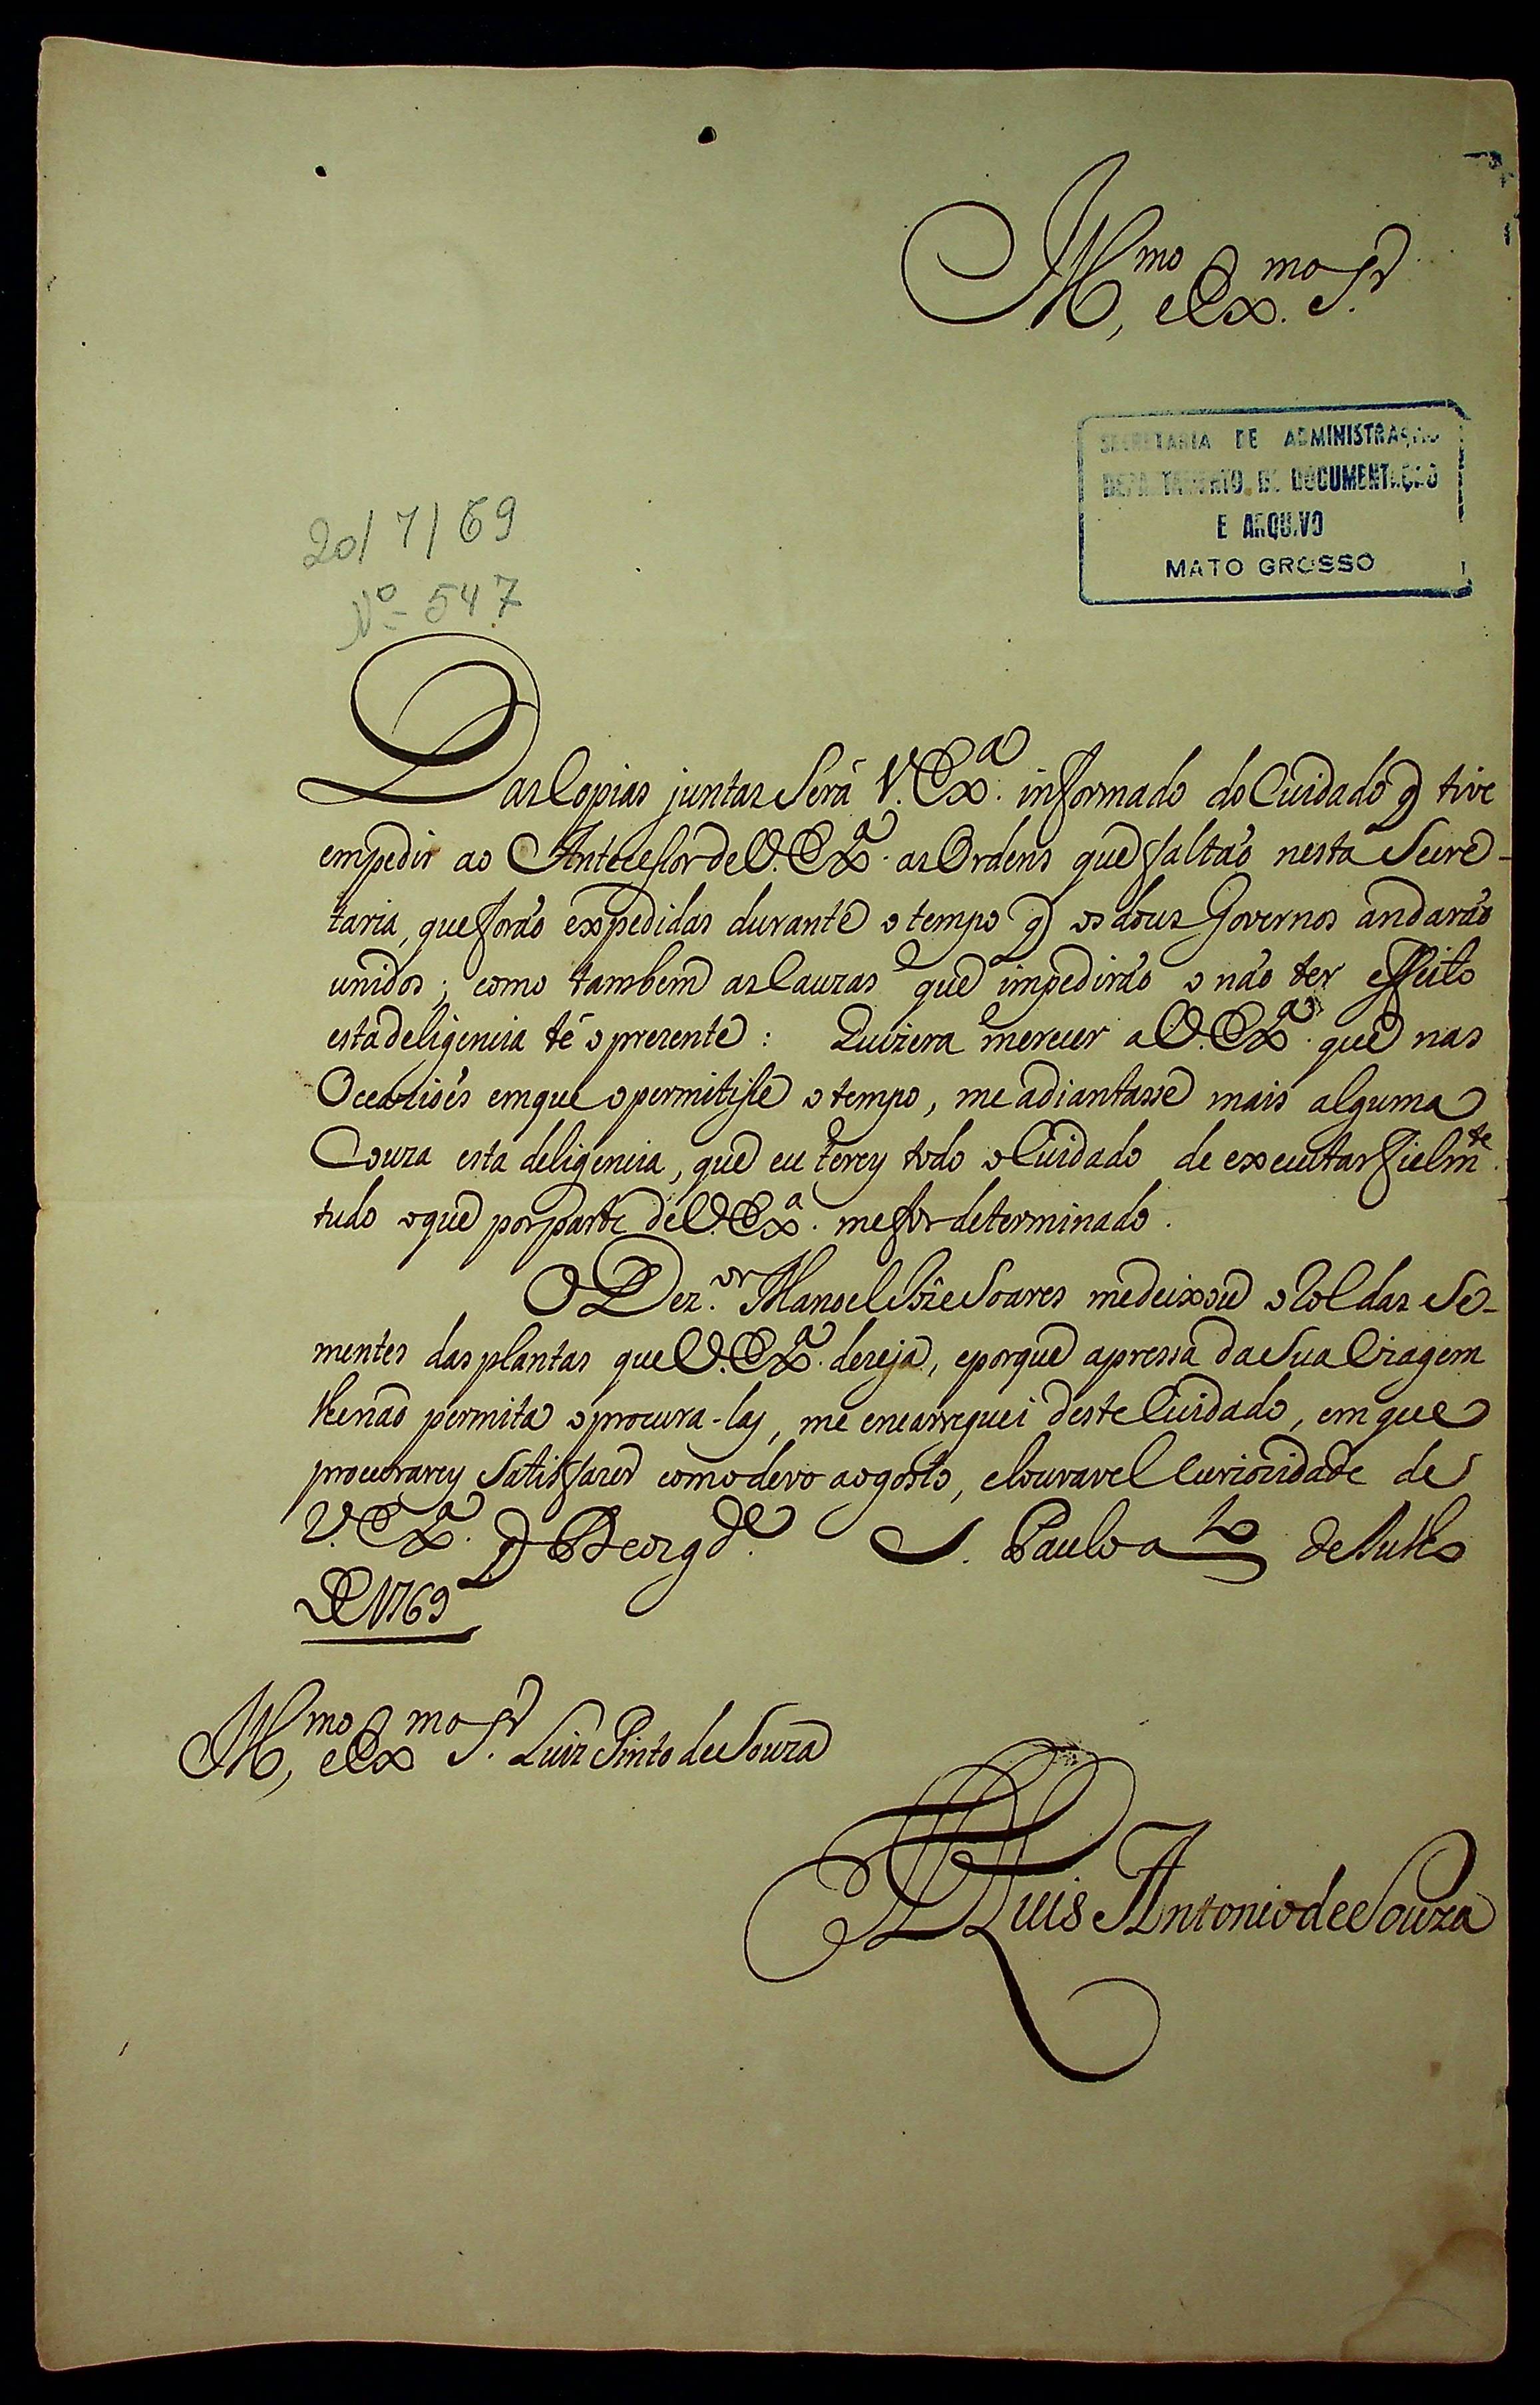 Ill.mo, e Ex.mo S.r
SECRETARIA DE ADMINISTRAÇÃO
DEPARTAMENTO DE DOCUMENTAÇÃO
E ARQUIVO
MATO GROSSO
20/7/69
Nº 547
Das Copias juntas Será V. Ex.a informado do Cuidado q̃ tive
em pedir ao Antecessor de V. Ex.a as Ordens que faltaõ nesta Secre-
taria, que foraõ expedidas durante o tempo q̃ os dous Governos andaraõ
unidos; como tambem as Cauzas que impediraõ o naõ ter effeito
esta deligencia té o prezente: Quizera merecer a V. Ex.a que nas
Occaziões em que o permitisse o tempo, me adiantasse mais alguma
Couza esta deligencia, que eu terey todo o Cuidado de executar fielm.te
tudo o que por parte de V. Ex.a me for determinado.
O Dez.or Manoel Joze Soares me deixou o Rol das Se-
mentes das plantas que V. Ex.a dezeja, e porque a pressa da Sua Viagem
lhe naõ permita o procura-las, me encarreguei deste Cuidado, em que
procurarey Satisfazer como devo ao gosto, e louvavel Curiozidade de
V. Ex.a q̃ Deos g.de S. Paulo a de Julho
de 1769
Ill.mo, e Ex.mo S.r Luiz Pinto de Souza
D. Luis Antonio de Souza